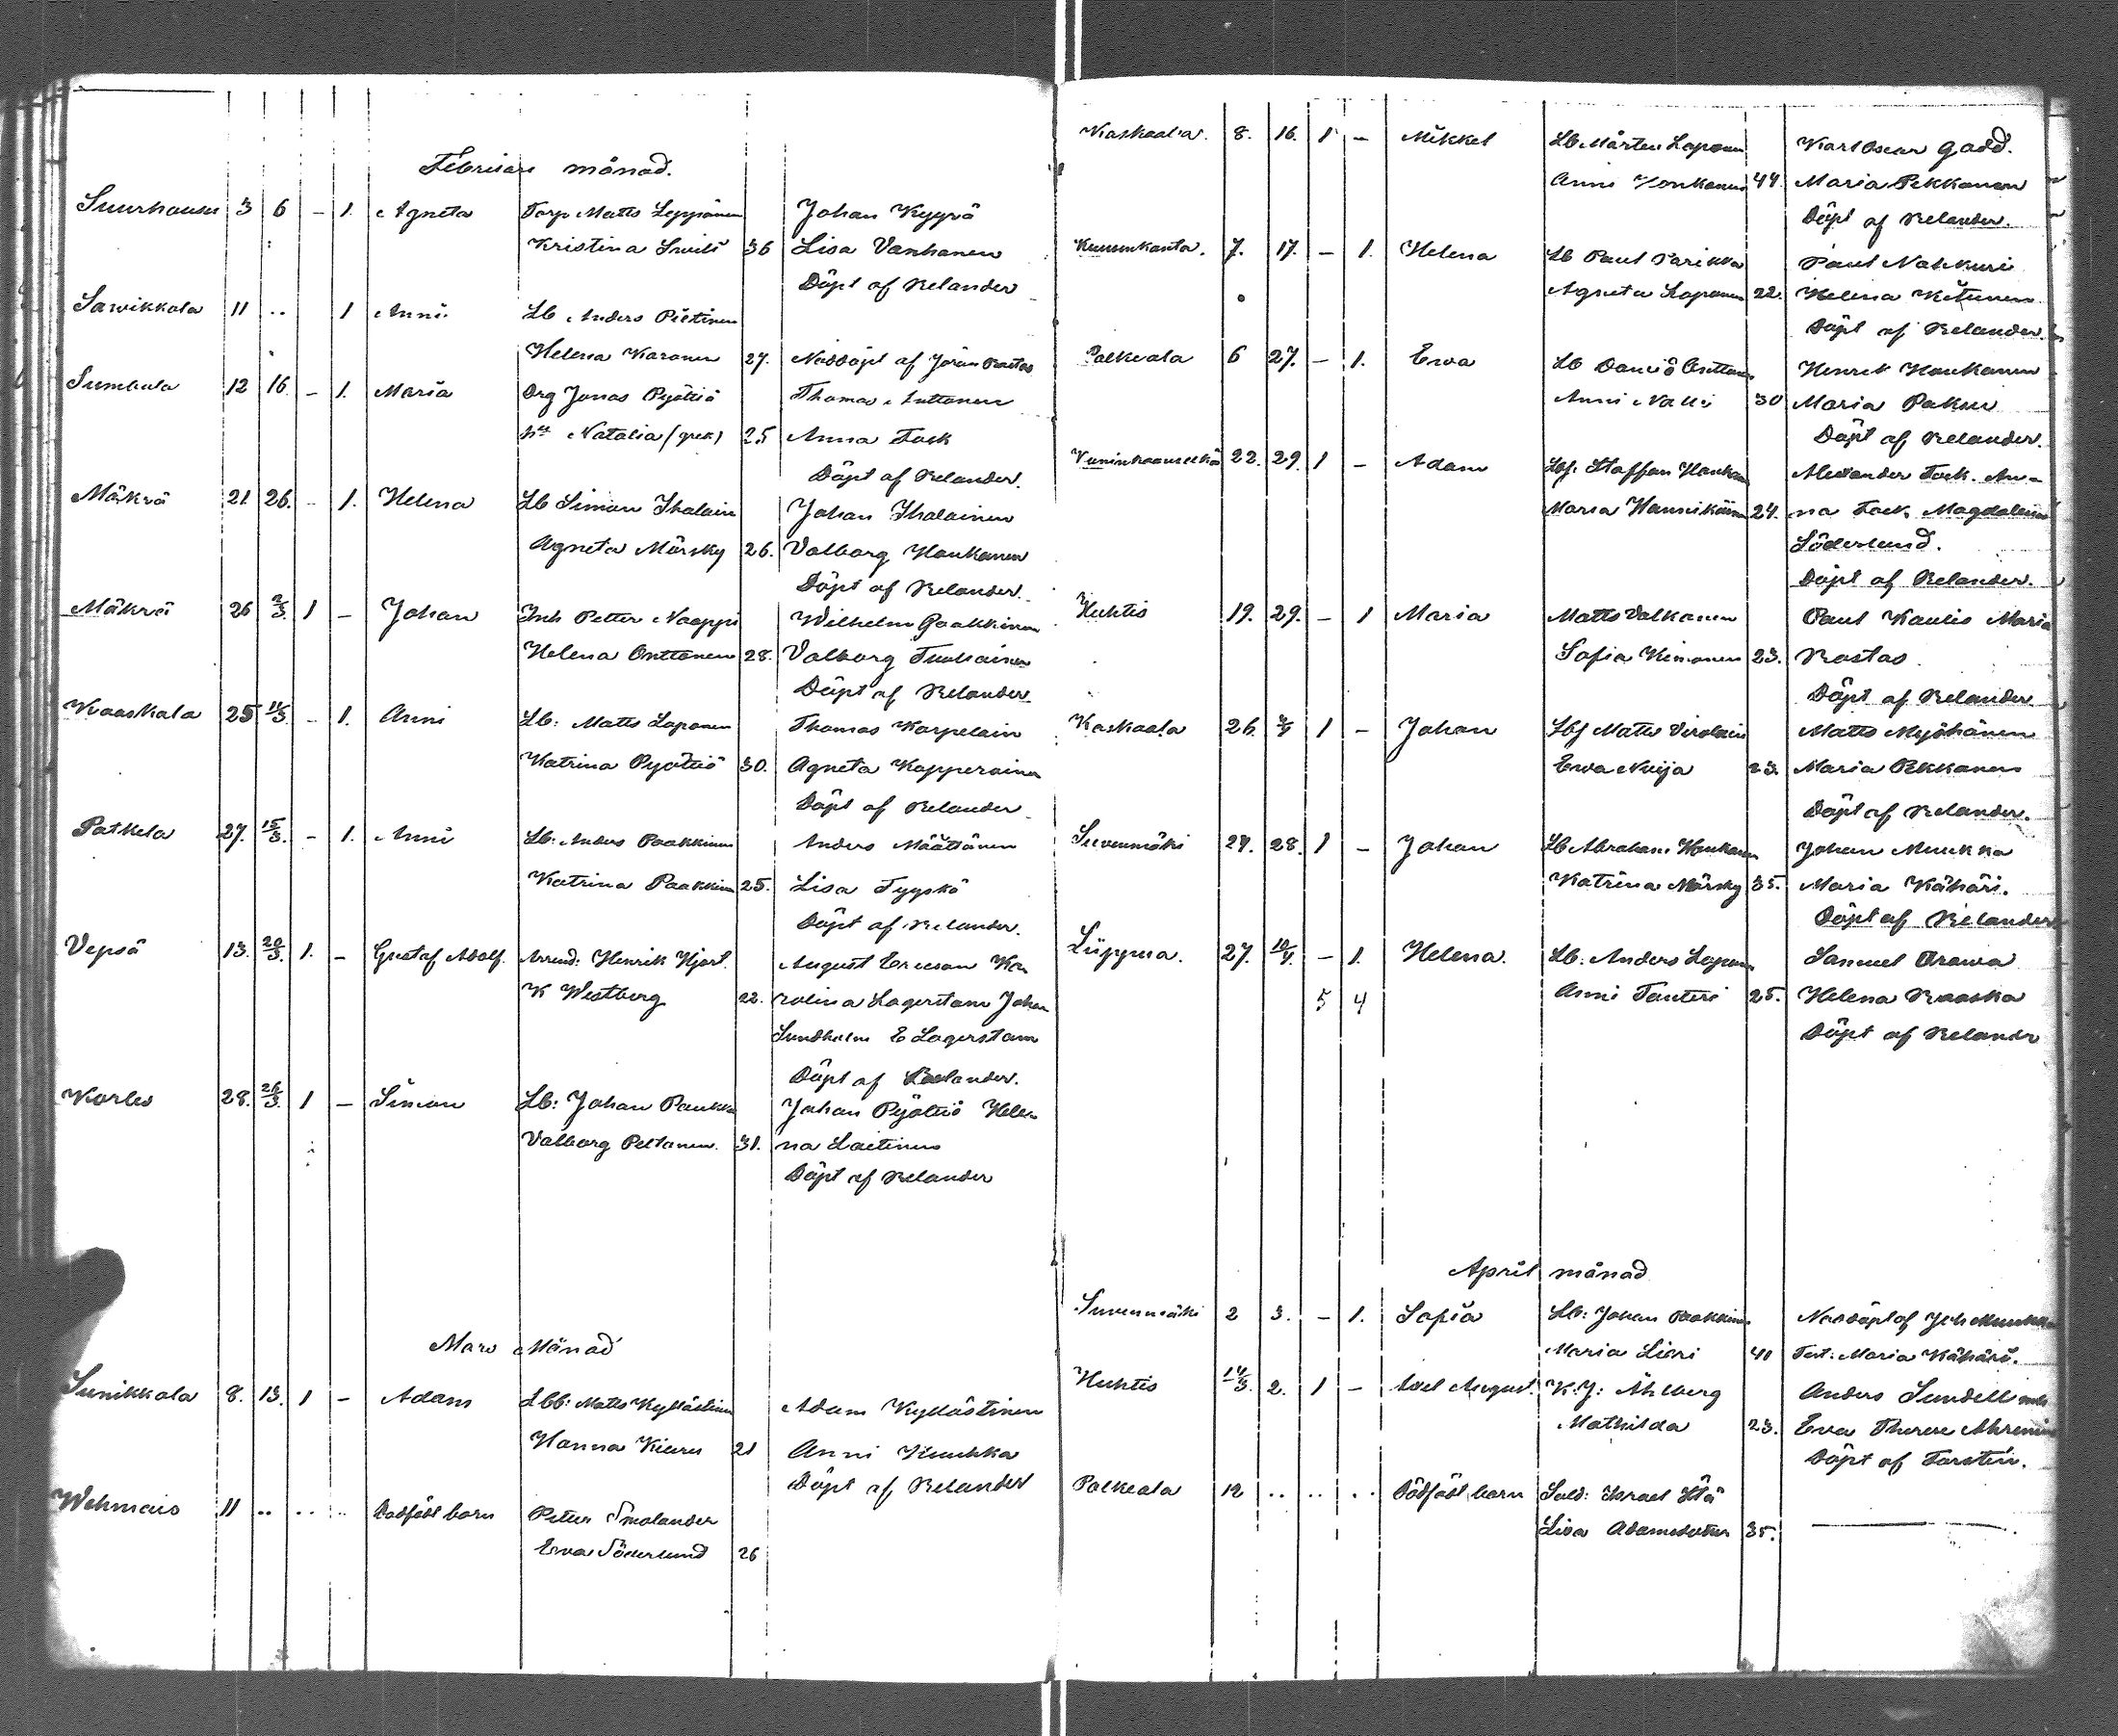 Februari månad.
Suurhauses 3 6 – 1. Agneta Torp Matts Leppänen Johan Kyyrö
Kristina Suili 36 Lisa Vanhanen
Döpt af Relander
Sawikkala 11 .. 1 Anni Lb Anders Pietinen
Helena Karonen 27. Nöddöpt af Jöran Rastas
Sumbula 12 16. – 1. Maria Drg Jonas Pyöttiö Thomas Anttonen
Natalia (grek) 25 Anna Fock
Döpt af Relander.
Mäkrä 21 26. – 1. Helena Lb Simon Ihalain Johan Ihalainen
Agneta Mörsky 26. Valborg Haukanen
Döpt af Relander.
Mäkrä 26 2/3. 1 – Johan Inh Petter Naappi Wilhelm Paakkinen
Helena Onttonen 28. Valborg Tiuhainen
Döpt af Relander
Kaaskala 25 11/3. – 1. Anni Lb: Matts Laponen Thomas Karpelain
Katrina Pyöttiö 30. Agneta Kapperainen
Döpt af Relander
Patkela 27. 15/3. – 1. Anni Lb: Anders Paakkinen Anders Määttänen
Katrina Paakkinen 25. Lisa Tyyskä
Döpt af Relander.
Vepsä 13. 20/3. 1. – Gustaf Adolf. Arrend: Henrik Hjort. August Ericson Ka
K Westberg 22. rolina Lagerstam Johan
Sundholm E Lagerstam
Döpt af Relander.
Karles 28. 26/3. 1 – Simon Lb: Johan Paukku Johan Pyöttiö Hele
Valborg Peltanen. 31. na Laitinen
Döpt af Relander
Mars Månad
Sunikkala 8. 13. 1 – Adam Lbb: Matts Kylläštinen Adam Kyllästinen
Hanna Kiuru 21 Anni Kuukka
Döpt af Relander
Wehmais 11 .. .. .. Dödfödt barn Peter Smolander
Ewa Söderlund 26
Kaskaala. 8. 16. 1 – Mikkel Lb Mårten Laponen Karl Oscar Gadd.
Anni Honkanen 44. Maria Pekkanen
Döpt af Relander.
Kuumkanta. 7. 17. – 1. Helena Lb Paul Parikka Paul Nahkuri
Agneta Laponen 22. Helena Kitunen
Döpt af Relander.
Palkeala 6 27. – 1. Ewa Lb David Onttonen Henrik Haukanen
Anni Nalli 30 Maria Pakur
Döpt af Relander.
22. 29. 1 – Adam Lbf. Staffan Haukanen Alexander Fock. An-
Maria Hannikäinen 24. na Fock Magdalena
Söderlund.
Döpt af Relander.
Huhtis 19. 29. – 1 Maria Matts Valkanen Paul Kaulio Maria
Sofia Kimonen 23. Rastas
Döpt af Relander
Kaskaala 26. 4/4 1 – Johan Lbf Matts Virolain Matts Myöhänen
Ewa Nuija 23. Maria Pekkanen
Döpt af Relander.
Suvenmäki 27. 28. 1 – Johan Lb Abraham Haukanen Johan Muukka
Katrina Mörsky 35. Maria Kähäri.
Döpt af Relander
Liippua. 27. 10/4. – 1. Helena. Lb: Anders Laponen Samuel Orawa
5 4 Anni Tanteri 25. Helena Raaska
Döpt af Relander
April månad
Suvenmäki 2 3. – 1. Sofia Lb: Johan Paakkinen Nöddöpt af Joh Muukka
Maria Liski 40 Test: Maria Kähäri.
Huhtis 14/3. 2. 1 – Axel August. K.J: Åhlberg Anders Sundell
Mathilda 23. Eva Therese
Döpt af Forstén.
Palkeala 12 .. .. .. Dödfödt barn Sold: Israel Stå
Lisa Adamsdotter 35.